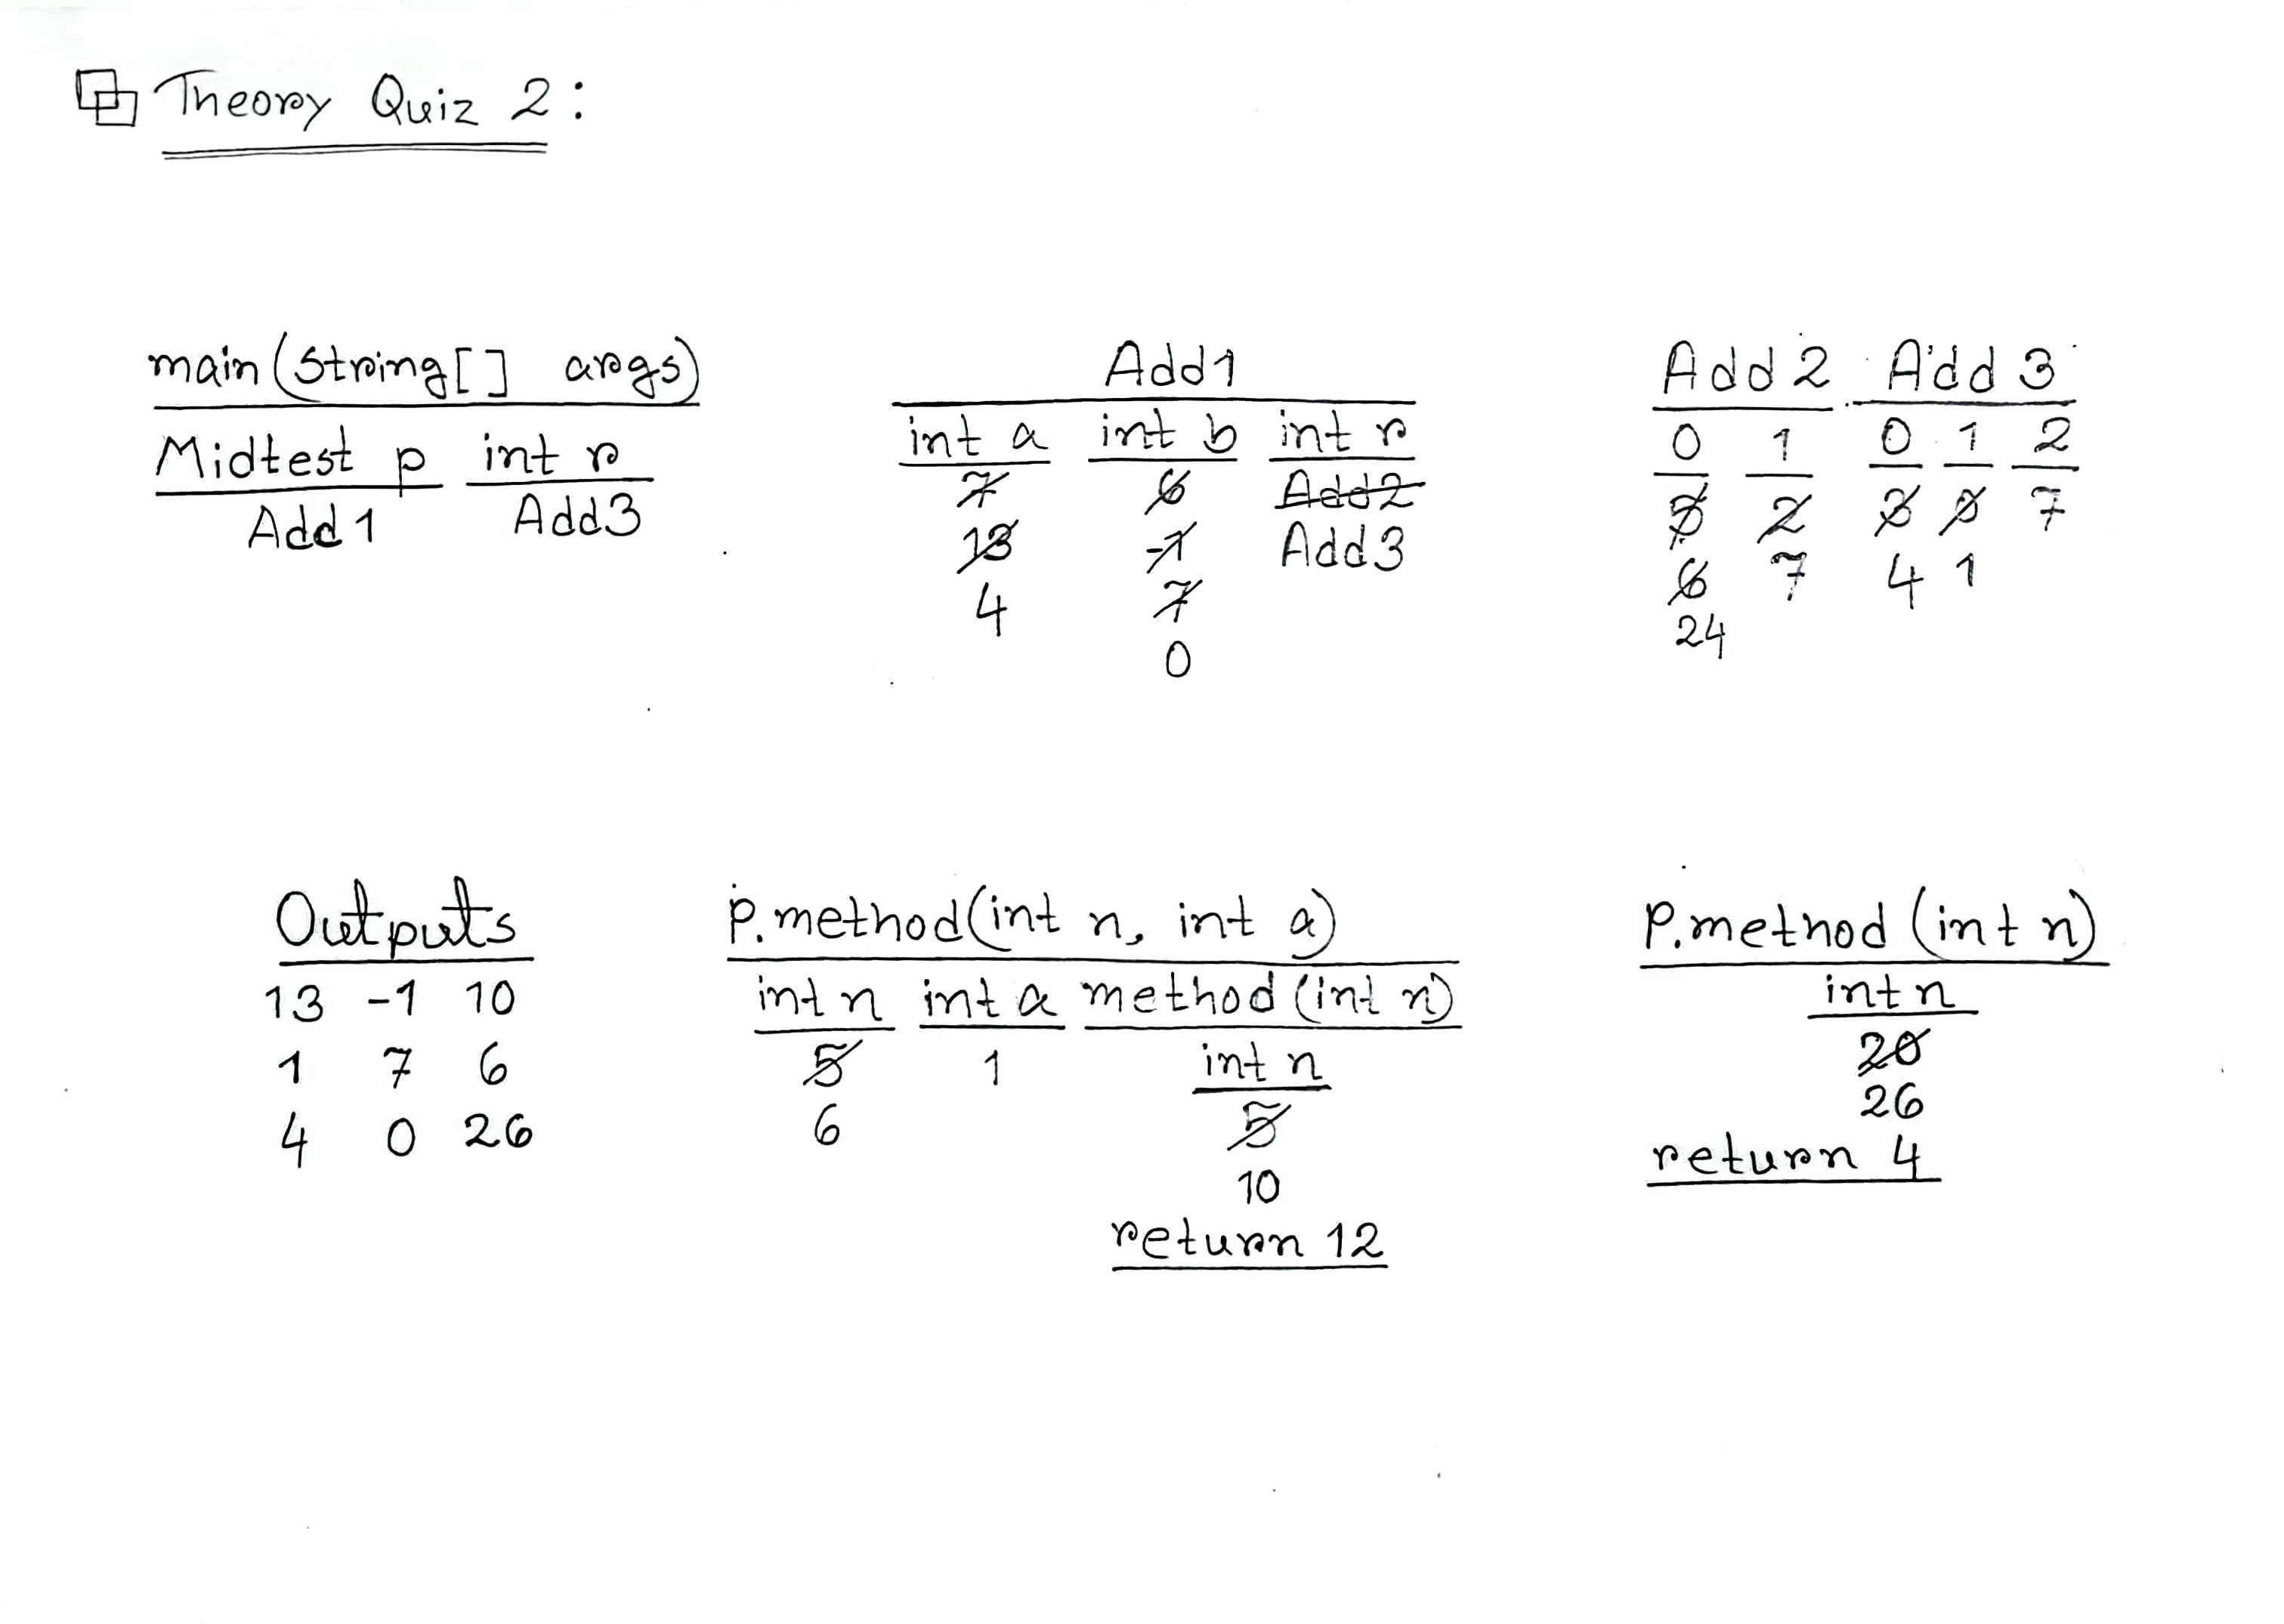 Theory Quiz 2:
main(String[] args)
Midtest p int r
Add1 Add3
Add1
int a int b int r
7 6 Add2
13 -1 Add3
4 7
0
Add 2 Add 3
0 1 0 1 2
2 7
6 7 4 1
24
Outputs
13 -1 10
1 7 6
4 0 26
p.method(int n, int a)
int n int a method(int n)
5 1 int n
6 5
10
return 12
p.method(int n)
int n
20
26
return 4